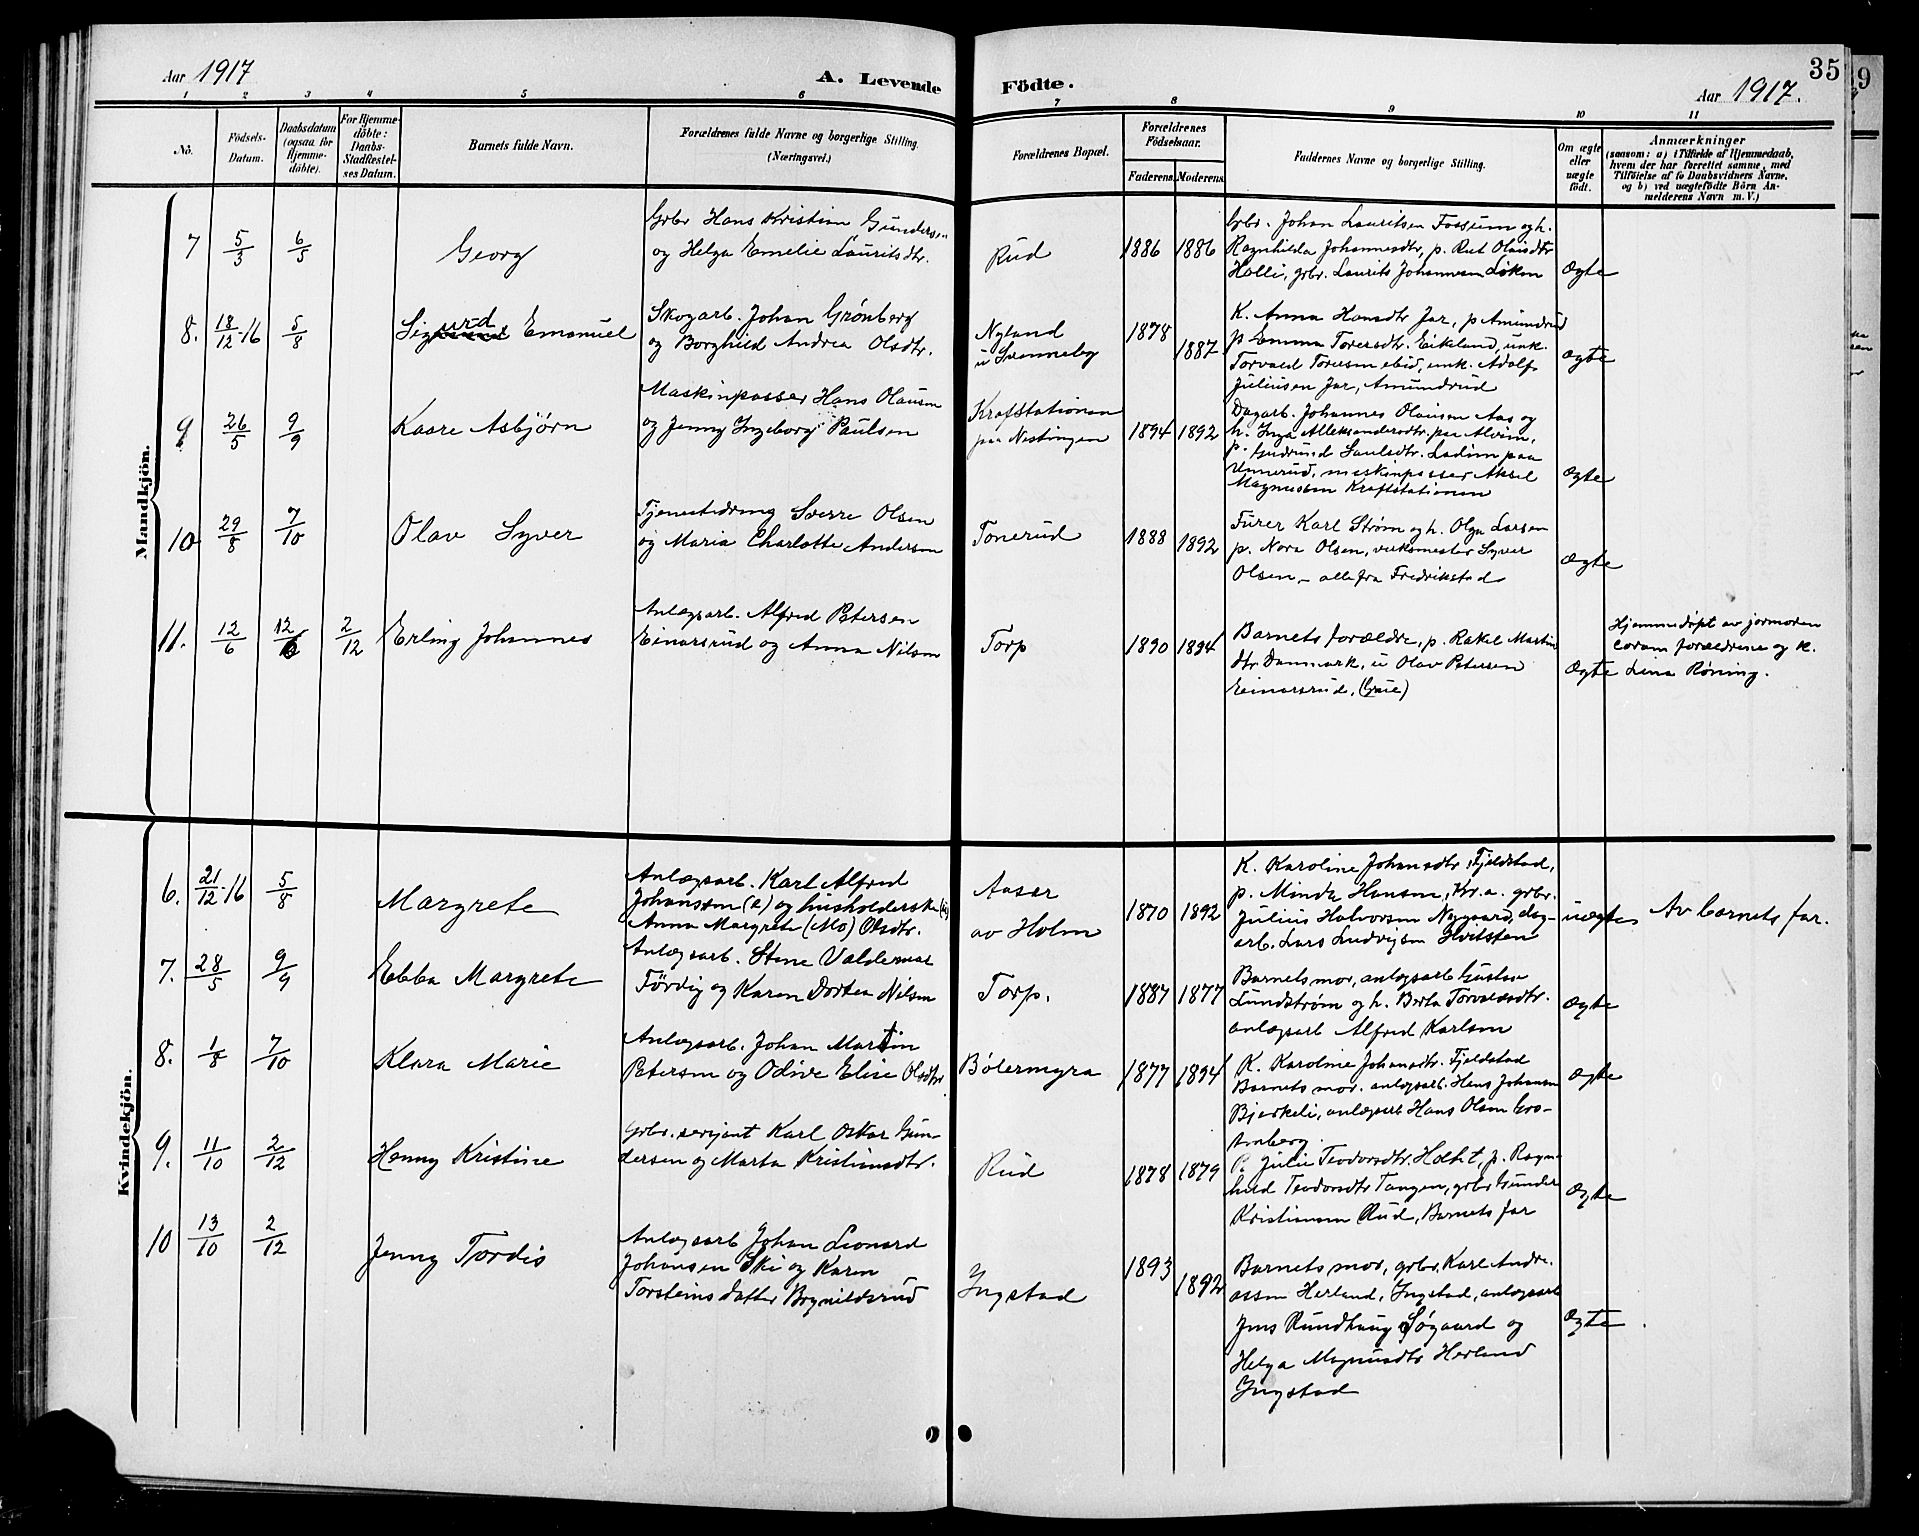 Aar 1917
A. Levende Födte.
Aar 1917.
35
9
1 2 3 4 5 6 7 8 9 10 11
No.
Födsels-Datum.
Daabsdatum (ogsaa for Hjemmedöbte).
For Hjemmedöbte: Daabs-Stadfæstelses Datum.
Barnets fulde Navn.
Forældrenes fulde Navne og borgerlige Stilling.
(Næringsvei.)
Forældrenes Bopæl.
Forældrenes Födselsaar.
Faderens. Moderens.
Faddernes Navne og borgerlige Stilling.
Om ægte eller uægte födt.
Anmærkninger
(saasom: a) i Tilfælde af Hjemmedaab,
hvem der har forrettet samme, med
Tilföielse af to Daabsvidners Navne,
og b) ved uægtefödte Börn Anmelderens Navn m. V.)
Mandkjön.
7 5/3 6/5 Georg
Grbr Hans Kristian Gundersen
og Helga Emelie Lauritsdtr.
Rud 1886 1886
Grbr. Johan Lauritsen Fossum og h.
Ragnhilda Johannesdtr, p. Rut Olausdtr
Holli, grbr. Laurits Johannesen Løken
Ægte
8. 18/12-16 5/8 Sigurd Emanuel
Skogarb. Johan Grönberg
og Borghild Andrea Olsdtr.
Nyland
u Sømmeby
1878 1887
K. Anna Hansdtr Jar, p Amundrud
p Emma Toresdtr. Eikland, unk.
Torvald Toresen ebid, unk. Adolf
Juliusen Jar, Amundrud
Ægte
9 26/5 9/9 Kaare Asbjørn
Maskinpasser Hans Olausen
og Jenny Ingeborg Paulsen
Krafstationen
paa Nestingen
1894 1892
Dagarb. Johannes Olausen Aas og
h. Inga Alleksandersdtr. paa Alvim,
p. Gudrund Paulsdtr. Ladim paa
Unnerud, maskinpasser Aksel
Magnussen Kraftstationen
Ægte
10 29/8 7/10 Olav Syver
Tjenestedreng Sverre Olsen
og Maria Charlotte Andersen
Tonerud 1888 1892
Furer Karl Strøm og h. Olga Larsen
p. Nora Olsen, verksmester Syver
Olsen – alle fra Fredrikstad
Ægte
11. 12/6 12/6 2/12 Erling Johannes
Anlægsarb. Alfred Petersen
Einarsrud og Anna Nilsen
Torp 1890 1894
Barnets forældre, p. Rakel Martin
dtr Danmark, u Olav Petersen
Einarsrud, (Grue)
Ægte
Hjemmedøpt av jormoren
coram forældrene og K.
Lina Røning.
Kvindekjön.
6. 21/12-16 5/8 Margrete
Anlægsarb. Karl Alfred
Johansen (e) og husholderske (ug)
Anna Margrete (Mo) Olsdtr.
Aaser
av Holm
1870 1892
K. Karoline Johansdtr. Fjeldstad,
p. Minda Hansen, Kr.a. grbr.
Julius Halvorsen Nygaard, dag-
arb. Lars Ludvigsen Hvitsten
uægte
Av barnets far.
7. 28/5 9/9 Ebba Margrete
Anlægsarb. Stene Valdemar
Fördig og Karen Dortea Nilsen
Torp. 1887 1877
Barnets mor, anlægsarb Gustav
Lundstrøm og h. Berta Torvaldsdtr.
anlægsarb Alfred Karlsen
Ægte
8. 1/8 7/10 Klara Marie
Anlægsarb. Johan Martin
Petersen og Odive Elise Olsdtr
Bölermyra 1877 1894
K. Karoline Johansdtr. Fjeldstad
Barnets mor. anlægsarb. Hans Johansen
Bjerkeli, anlægsarb Hans Olsen Gros-
Ægte
9. 11/10 2/12 Henny Kristine
Grbr. serjant Karl Oskar Gun-
dersen og Marta Kristiansdtr.
Rud 1878 1879
P. Julie Teodorsdtr. Holtet, p. Ragn-
hild Teodorsdtr Tangen, grbr Gunder
Kristiansen Rud, Barnets far
Ægte
10 13/10 2/12 Jenny Tordis
Anlægsarb Johan Leonard
Johansen Ski og Karen
Torsteins datter Brynildsrud
Ingstad 1893 1892
Barnets mor, grbr. Karl Andre-
assen Herland, Ingstad, anlægsarb
Jens Rundhaug Søgaard og
Helga Magnusdtr Herland
Ingstad
Ægte